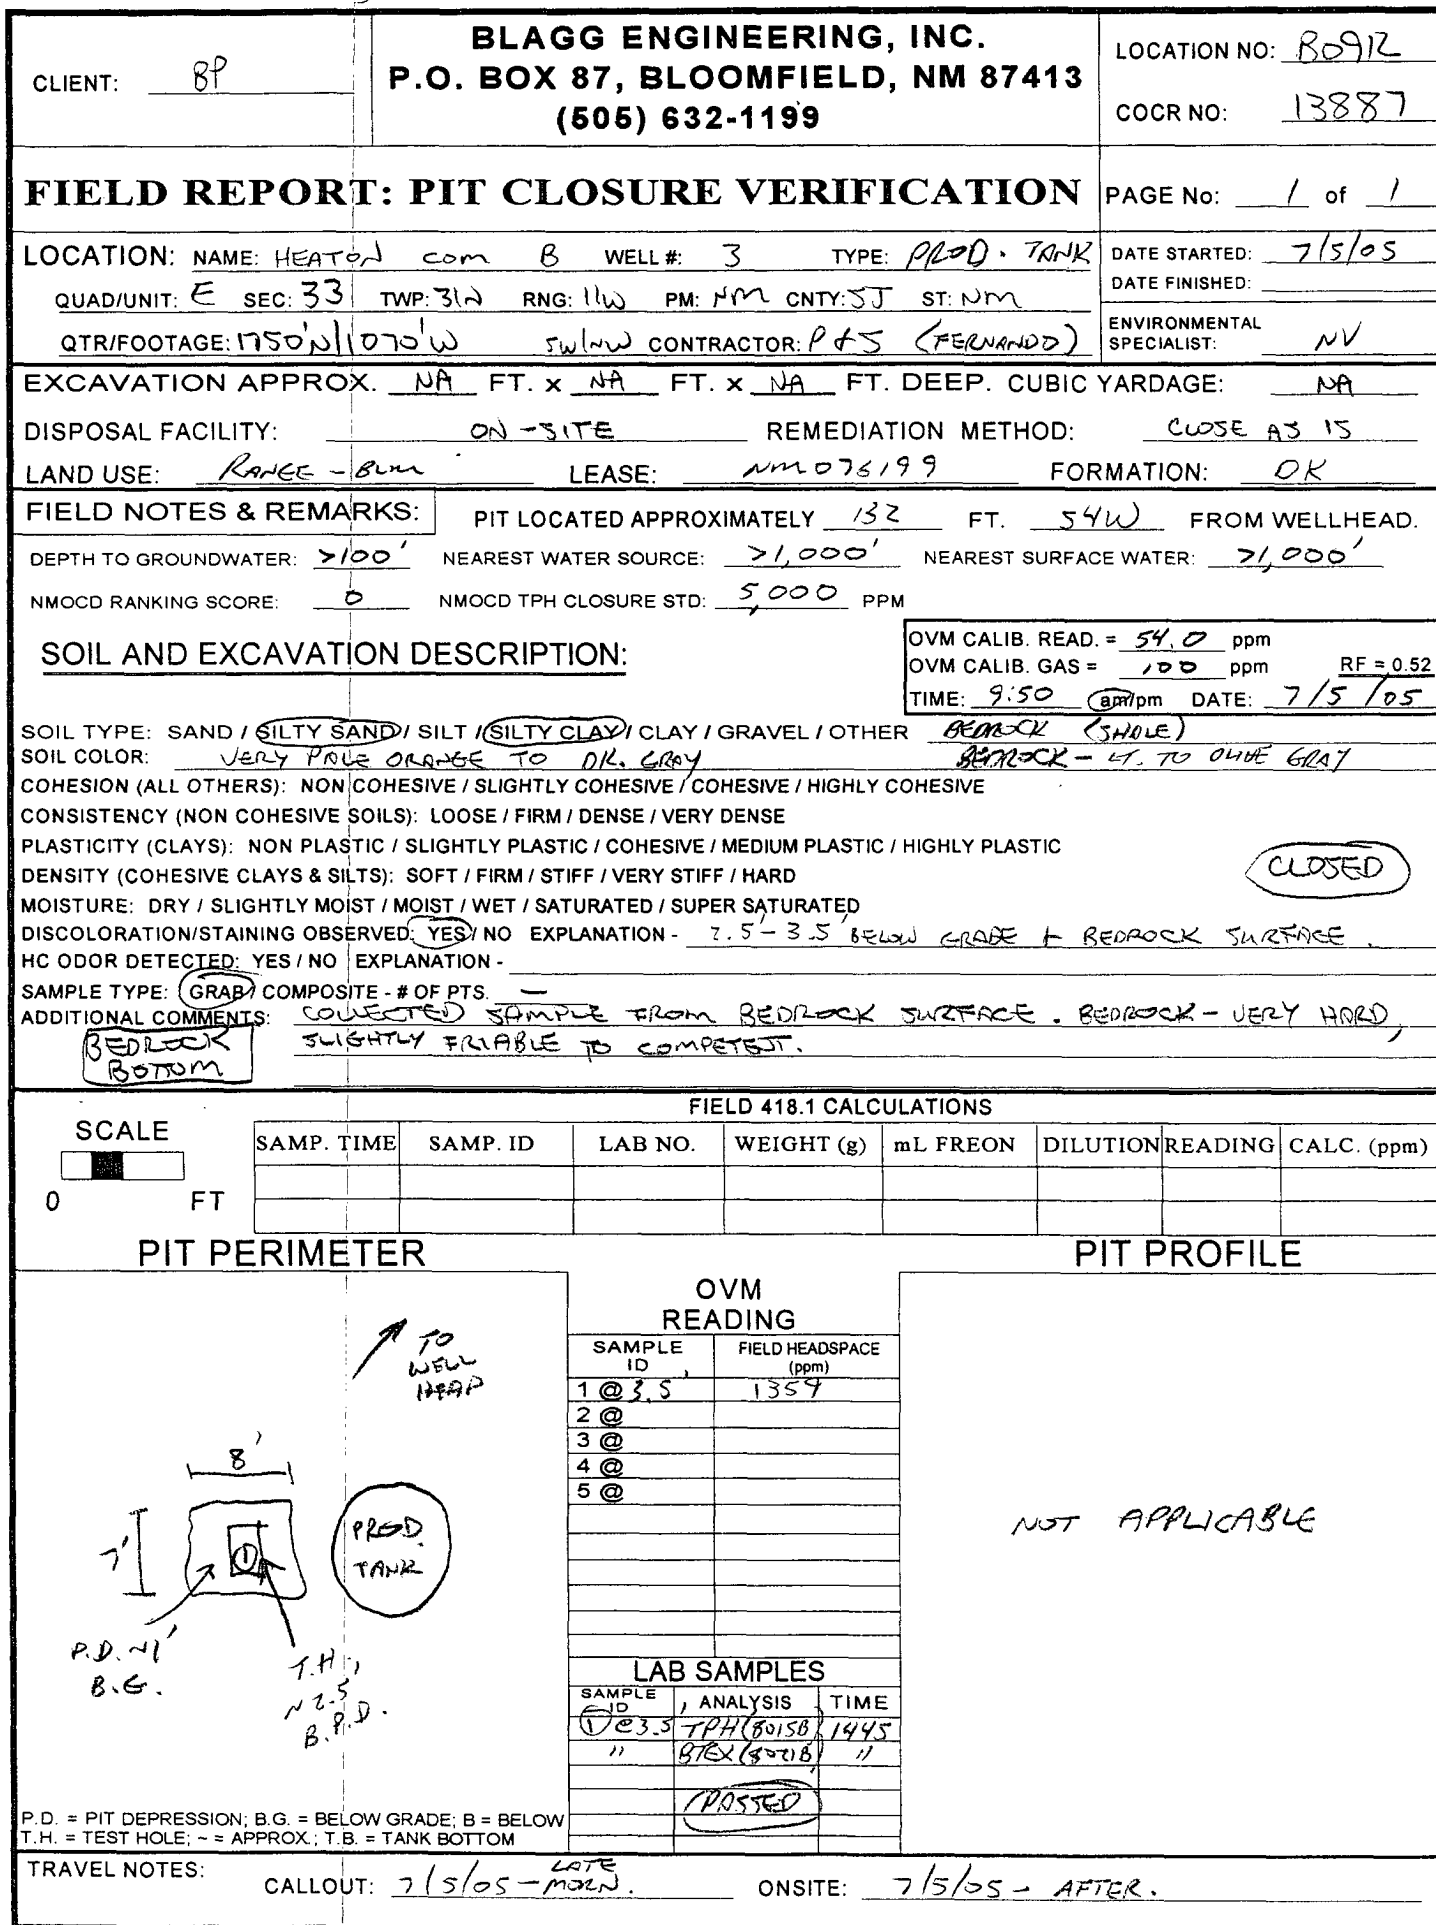 CLIENT: BP
BLAGG ENGINEERING, INC.
P.O. BOX 87, BLOOMFIELD, NM 87413
(505) 632-1199
LOCATION NO: B0912
COCR NO: 13887
FIELD REPORT: PIT CLOSURE VERIFICATION
PAGE No: 1 of 1
LOCATION: NAME: HEATON COM B WELL #: 3 TYPE: PROD. TANK
QUAD/UNIT: E SEC: 33 TWP: 31N RNG: 11W PM: NM CNTY: SJ ST: NM
QTR/FOOTAGE: 1750'N/1070'W SW/NW CONTRACTOR: P & S (FERNANDO)
DATE STARTED: 7/5/05
DATE FINISHED:
ENVIRONMENTAL SPECIALIST: NV
EXCAVATION APPROX. NA FT. x NA FT. x NA FT. DEEP. CUBIC YARDAGE: NA
DISPOSAL FACILITY: ON-SITE REMEDIATION METHOD: CLOSE AS IS
LAND USE: RANGE - BLM LEASE: NM076199 FORMATION: DK
FIELD NOTES & REMARKS: PIT LOCATED APPROXIMATELY 132 FT. S4W FROM WELLHEAD.
DEPTH TO GROUNDWATER: >100' NEAREST WATER SOURCE: >1,000' NEAREST SURFACE WATER: >1,000'
NMOCD RANKING SCORE: 0 NMOCD TPH CLOSURE STD: 5,000 PPM
SOIL AND EXCAVATION DESCRIPTION:
OVM CALIB. READ. = 54.0 ppm
OVM CALIB. GAS = 100 ppm RF = 0.52
TIME: 9:50 am/pm DATE: 7/5/05
SOIL TYPE: SAND / SILTY SAND / SILT / SILTY CLAY / CLAY / GRAVEL / OTHER BEDROCK (SHALE)
SOIL COLOR: VERY PALE ORANGE TO DK. GRAY BEDROCK - LT. TO OLIVE GRAY
COHESION (ALL OTHERS): NON COHESIVE / SLIGHTLY COHESIVE / COHESIVE / HIGHLY COHESIVE
CONSISTENCY (NON COHESIVE SOILS): LOOSE / FIRM / DENSE / VERY DENSE
PLASTICITY (CLAYS): NON PLASTIC / SLIGHTLY PLASTIC / COHESIVE / MEDIUM PLASTIC / HIGHLY PLASTIC
DENSITY (COHESIVE CLAYS & SILTS): SOFT / FIRM / STIFF / VERY STIFF / HARD
CLOSED
MOISTURE: DRY / SLIGHTLY MOIST / MOIST / WET / SATURATED / SUPER SATURATED
DISCOLORATION/STAINING OBSERVED: YES / NO EXPLANATION - 2.5'-3.5' BELOW GRADE + BEDROCK SURFACE.
HC ODOR DETECTED: YES / NO EXPLANATION -
SAMPLE TYPE: GRAB / COMPOSITE - # OF PTS. —
ADDITIONAL COMMENTS: COLLECTED SAMPLE FROM BEDROCK SURFACE. BEDROCK - VERY HARD,
SLIGHTLY FRIABLE TO COMPETENT.
BEDROCK BOTTOM
FIELD 418.1 CALCULATIONS
SCALE
0 FT
SAMP. TIME SAMP. ID LAB NO. WEIGHT (g) mL FREON DILUTION READING CALC. (ppm)
PIT PERIMETER
PIT PROFILE
TO WELL HEAD
8'
7'
PROD. TANK
P.D. ~1' B.G.
T.H. ~2.5' B.P.D.
OVM READING
SAMPLE ID FIELD HEADSPACE (ppm)
1 @ 3.5' 1359
2 @
3 @
4 @
5 @
NOT APPLICABLE
LAB SAMPLES
SAMPLE ID ANALYSIS TIME
① @ 3.5' TPH (8015B) 1445
" BTEX (8021B) "
PASSED
P.D. = PIT DEPRESSION; B.G. = BELOW GRADE; B = BELOW
T.H. = TEST HOLE; ~ = APPROX.; T.B. = TANK BOTTOM
TRAVEL NOTES:
CALLOUT: 7/5/05 - LATE MORN. ONSITE: 7/5/05 - AFTER.